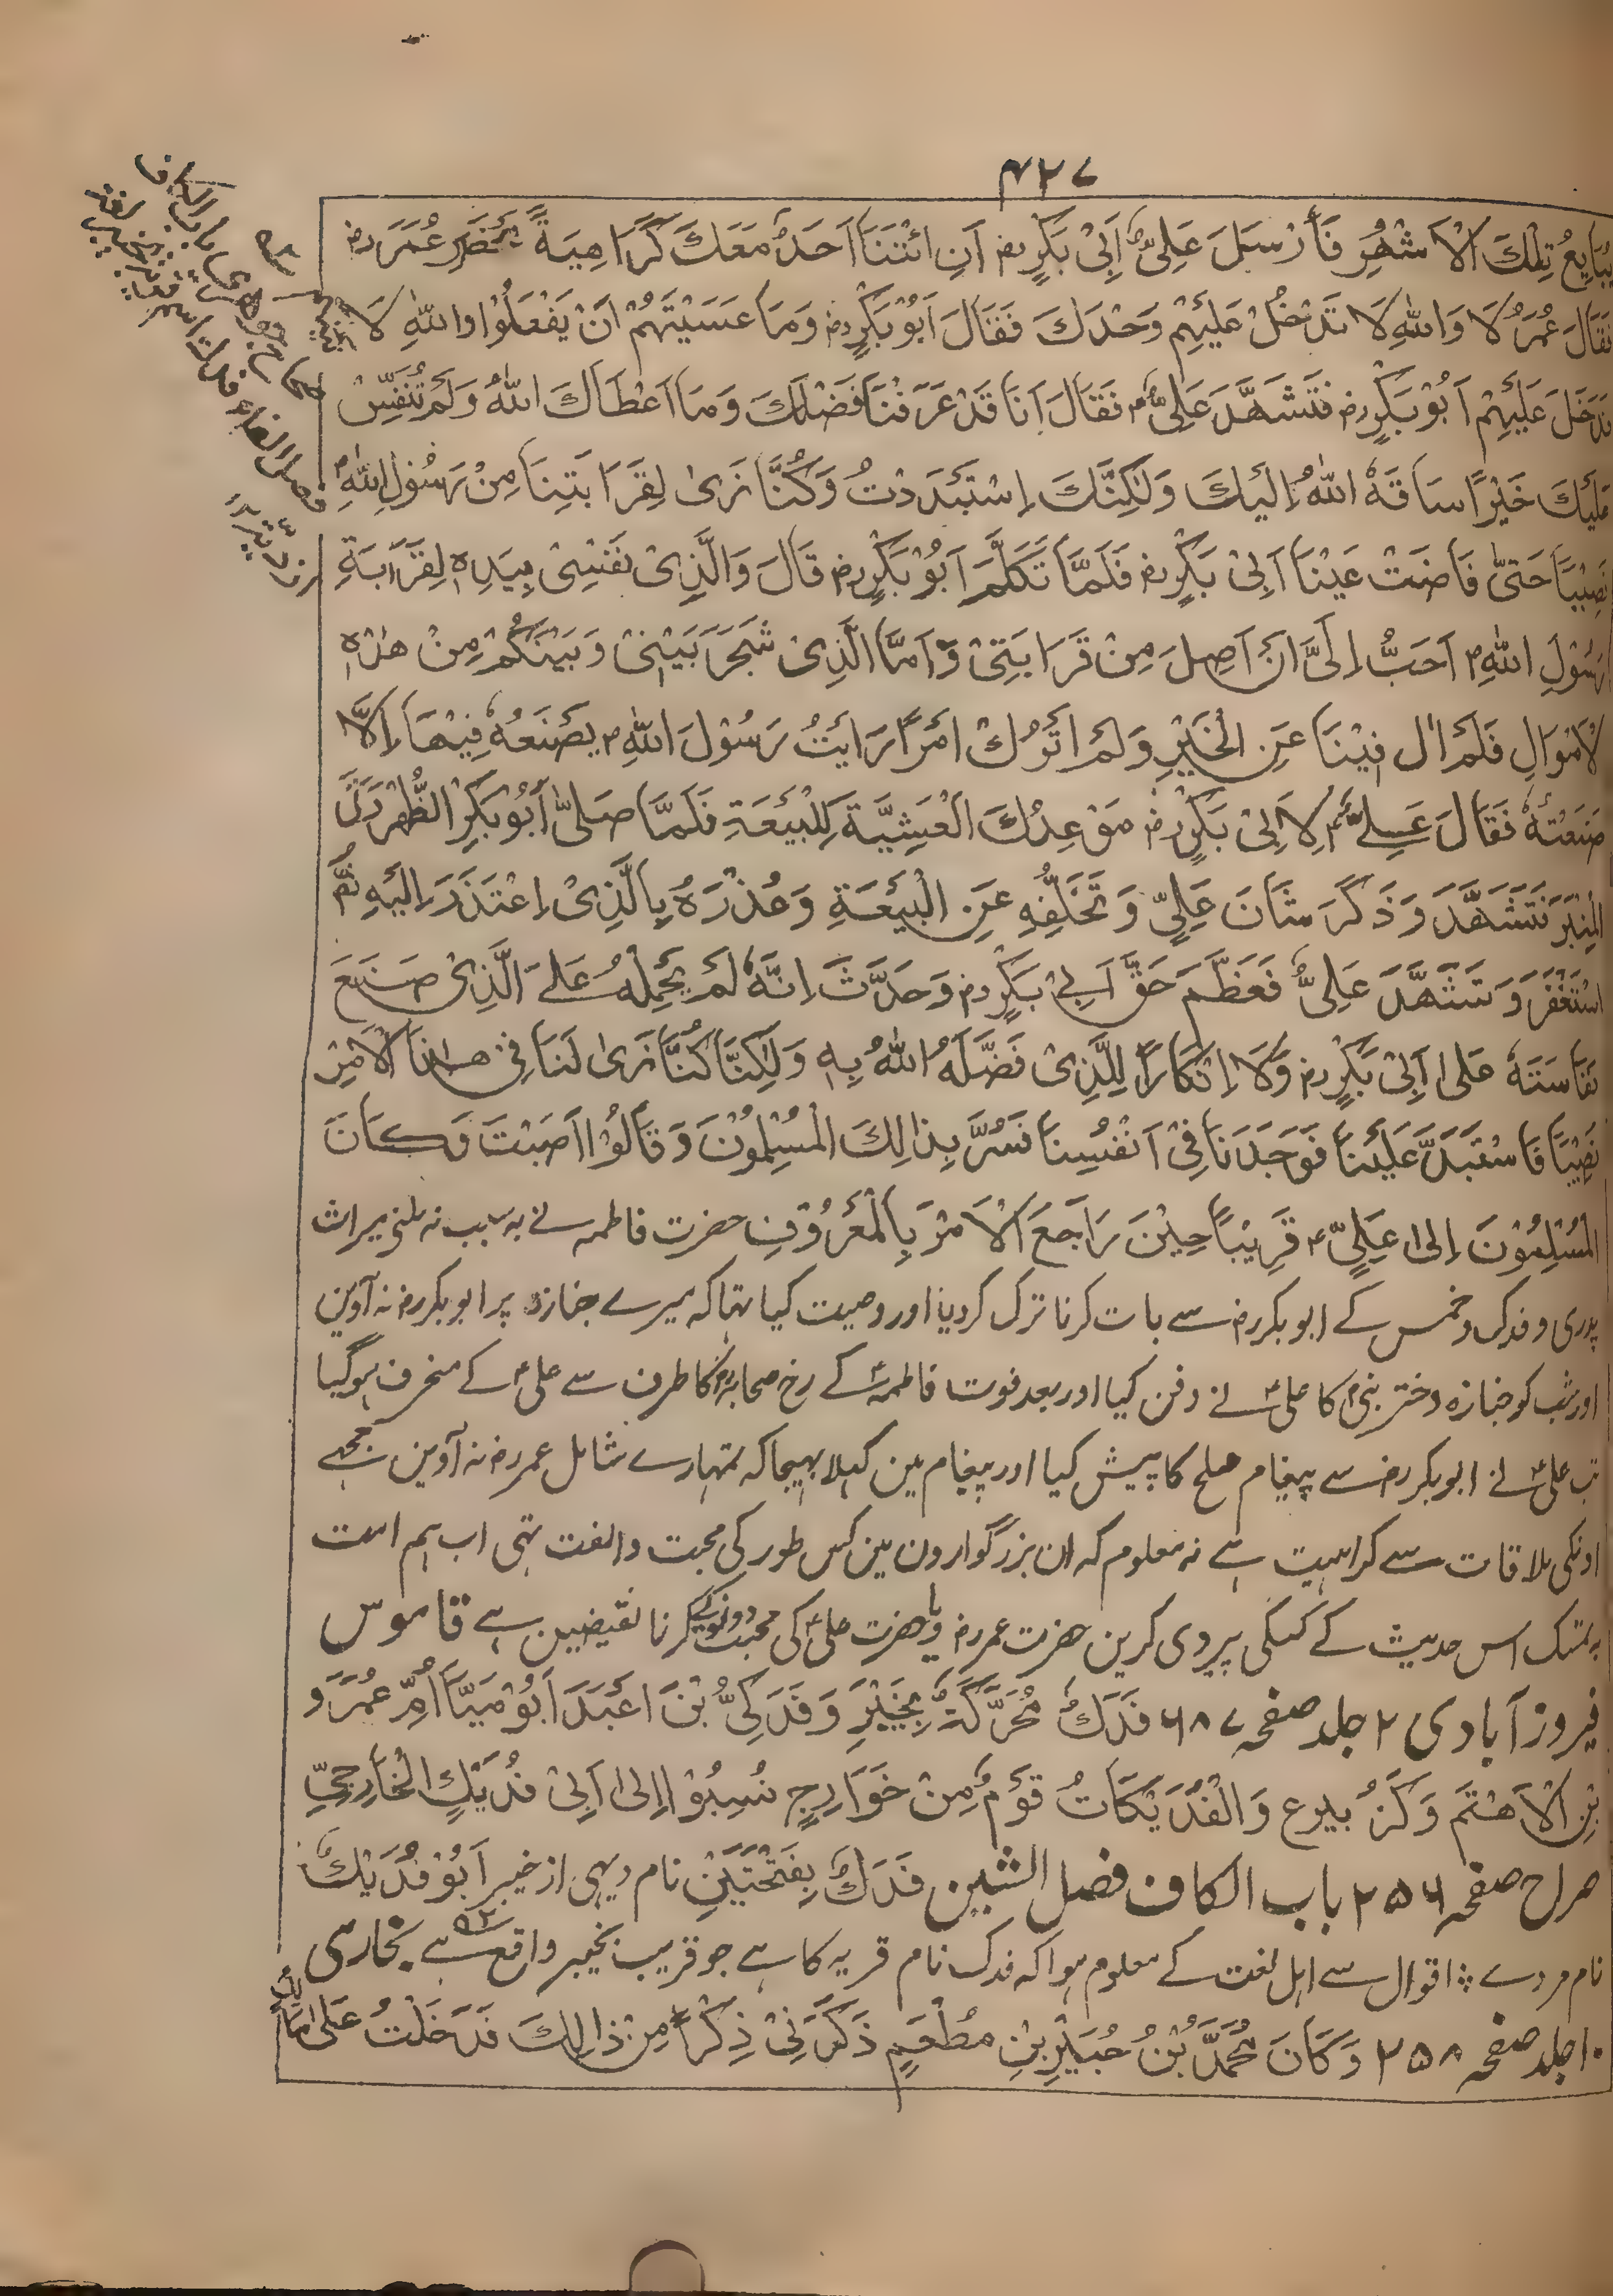 ۴۲۷
یُبَایِعُ تِلْكَ الْاَشْهُرِ فَاَرْسَلَ عَلِیٌّ اَبِیْ بَكْرٍ رض اَنِ ائْتِنَا اَحَدٌ مَعَكَ كَرَاهِیَةً عُمَرَ رض
فَقَالَ عُمَرُ لَا وَاللهِ لَا تَدْخُلُ عَلَیْهِمْ وَحْدَكَ فَقَالَ اَبُوْبَكْرٍ رض وَمَا عَسَیْتَهُمْ اَنْ یَفْعَلُوْا وَاللهِ لَا
فَدَخَلَ عَلَیْهِمْ اَبُوْبَكْرٍ رض فَتَشَهَّدَ عَلِیٌّ فَقَالَ اَنَا قَدْ عَرَفْنَا فَضْلَكَ وَمَا اَعْطَاكَ اللهُ وَلَمْ نُنَفِّسْ
عَلَیْكَ خَیْرًا سَاقَهُ اللهُ اِلَیْكَ وَلٰكِنَّكَ اِسْتَبْدَدْتُ وَكُنَّا نَرٰی لِقَرَابَتِنَا مِنْ رَسُوْلِ اللهِ
نَصِیْبًا حَتّٰی فَاضَتْ عَیْنَا اَبِیْ بَكْرٍ رض فَلَمَّا تَكَلَّمَ اَبُوْبَكْرٍ رض قَالَ وَالَّذِیْ نَفْسِیْ بِیَدِهٖ لِقَرَابَةِ
رَسُوْلِ اللهِ اَحَبُّ اِلَیَّ اَنْ اَصِلَ مِنْ قَرَابَتِیْ وَاَمَّا الَّذِیْ شَجَرَ بَیْنِیْ وَبَیْنَكُمْ مِنْ هٰذِهٖ
الْاَمْوَالِ فَلَمْ اٰل فِیْنَا عَنِ الْخَیْرِ وَلَمْ اَتْرُكْ اَمْرًا رَاَیْتُ رَسُوْلَ اللهِ یَصْنَعُهٗ فِیْهَا اِلَّا
صَنَعْتُهٗ فَقَالَ عَلِیٌّ لِاَبِیْ بَكْرٍ رض مَوْعِدُكَ الْعَشِیَّةَ لِلْبَیْعَةِ فَلَمَّا صَلّٰی اَبُوْبَكْرِ الظُّهْرَ رَقَیَ
الْمِنْبَرَ فَتَشَهَّدَ وَذَكَرَ شَانَ عَلِیٍّ وَتَخَلُّفِهٖ عَنِ الْبَیْعَةِ وَعُذْرَهٗ بِالَّذِیْ اِعْتَذَرَ اِلَیْهِ ثُمَّ
اسْتَغْفَرَ وَتَشَهَّدَ عَلِیٌّ فَعَظَّمَ حَقَّ اَبِیْ بَكْرٍ رض وَحَدَّثَ اِنَّهٗ لَمْ یَحْمِلْهُ عَلَی الَّذِیْ صَنَعَ
نَفَاسَتَهٗ عَلٰی اَبِیْ بَكْرٍ رض وَلَا اِنْكَارًا لِلَّذِیْ فَضَّلَهُ اللهُ بِهٖ وَلٰكِنَّا كُنَّا نَرٰی لَنَا فِیْ هٰذَا الْاَمْرِ
نَصِیْبًا فَاسْتَبَدَّ عَلَیْنَا فَوَجَدَنَا فِیْ اَنْفُسِنَا فَسُرَّ بِذٰالِكَ الْمُسْلِمُوْنَ وَقَالُوْا اَصَبْتَ وَكَانَ
الْمُسْلِمُوْنَ اِلٰی عَلِیٍّ قَرِیْبًا حِیْنَ رَاجَعَ الْاَمْرَ بِالْمَعْرُوْفِ حضرت فاطمہ نے بہ سبب نہ ملنی میراث
پدری و فدک وخمس کے ابوبکر رض سے بات کرنا ترک کردیا اور وصیت کیا تہا کہ میرے جنازہ پر ابوبکر رض نہ آوین
اور شب کو جنازہ دختر نبی کا علی نے دفن کیا اور بعد فوت فاطمہ کے رخ صحابہ کا طرف سے علی کے منحرف ہوگیا
تب علی نے ابوبکر رض سے پیغام صلح کا پیش کیا اور پیغام مین کہلا بہیجا کہ تمہارے شامل عمر رض نہ آوین مجہے
اونکی ملاقات سے کراہیت ہے نہ معلوم کہ ان بزرگوارون مین کس طور کی محبت والفت تہی اب ہم امت
بہ تمسک اس حدیث کے کسکی پیروی کرین حضرت عمر رض و یا حضرت علی کی محبت دونوکی کرنا نقیضین ہے قاموس
فیروزآبادی ۲ جلد صفحہ ۶۸۷ فَدَكٌ مُحَرَّكَةٌ بِخَیْبَرِ وَفَدَكِیُّ بْنَ اَعْبَدَ اَبُوْ مَیَّا اُمِّ عُمَرَ و
بْنِ الْاَهْتَمِ وَكَزُبیرع وَالْفُدَیْكَاتُ قَوْمٌ مِنْ خَوَارِجٍ نُسِبُوْا اِلٰی اَبِیْ فُدَیْكِ الْخَارِجِیِّ
صراح صفحہ ۲۵۶ باب الکاف فصل الشین فَدَكٌ بِفَتْحَتَیْنِ نام دیہی از خیبر اَبُوْ فُدَیْكٌ
نام مردے ؞ اقوال سے اہل لغت کے معلوم ہوا کہ فدک نام قریہ کا ہے جو قریب بخیبر واقع ہے ۵۲ بخاری
۱۰ جلد صفحہ ۲۵۸ وَكَانَ مُحَمَّدُ بْنُ جُبَیْرِ بْنِ مُطْعَمٍ ذَكَرَنِیْ ذِكْرًا مِنْ ذَالِكَ فَدَخَلْتُ عَلٰی مَالِكِ
۵۲
صحاح جوهری باب الکاف
فصل الفاء فدك اسم قریة بخیبر